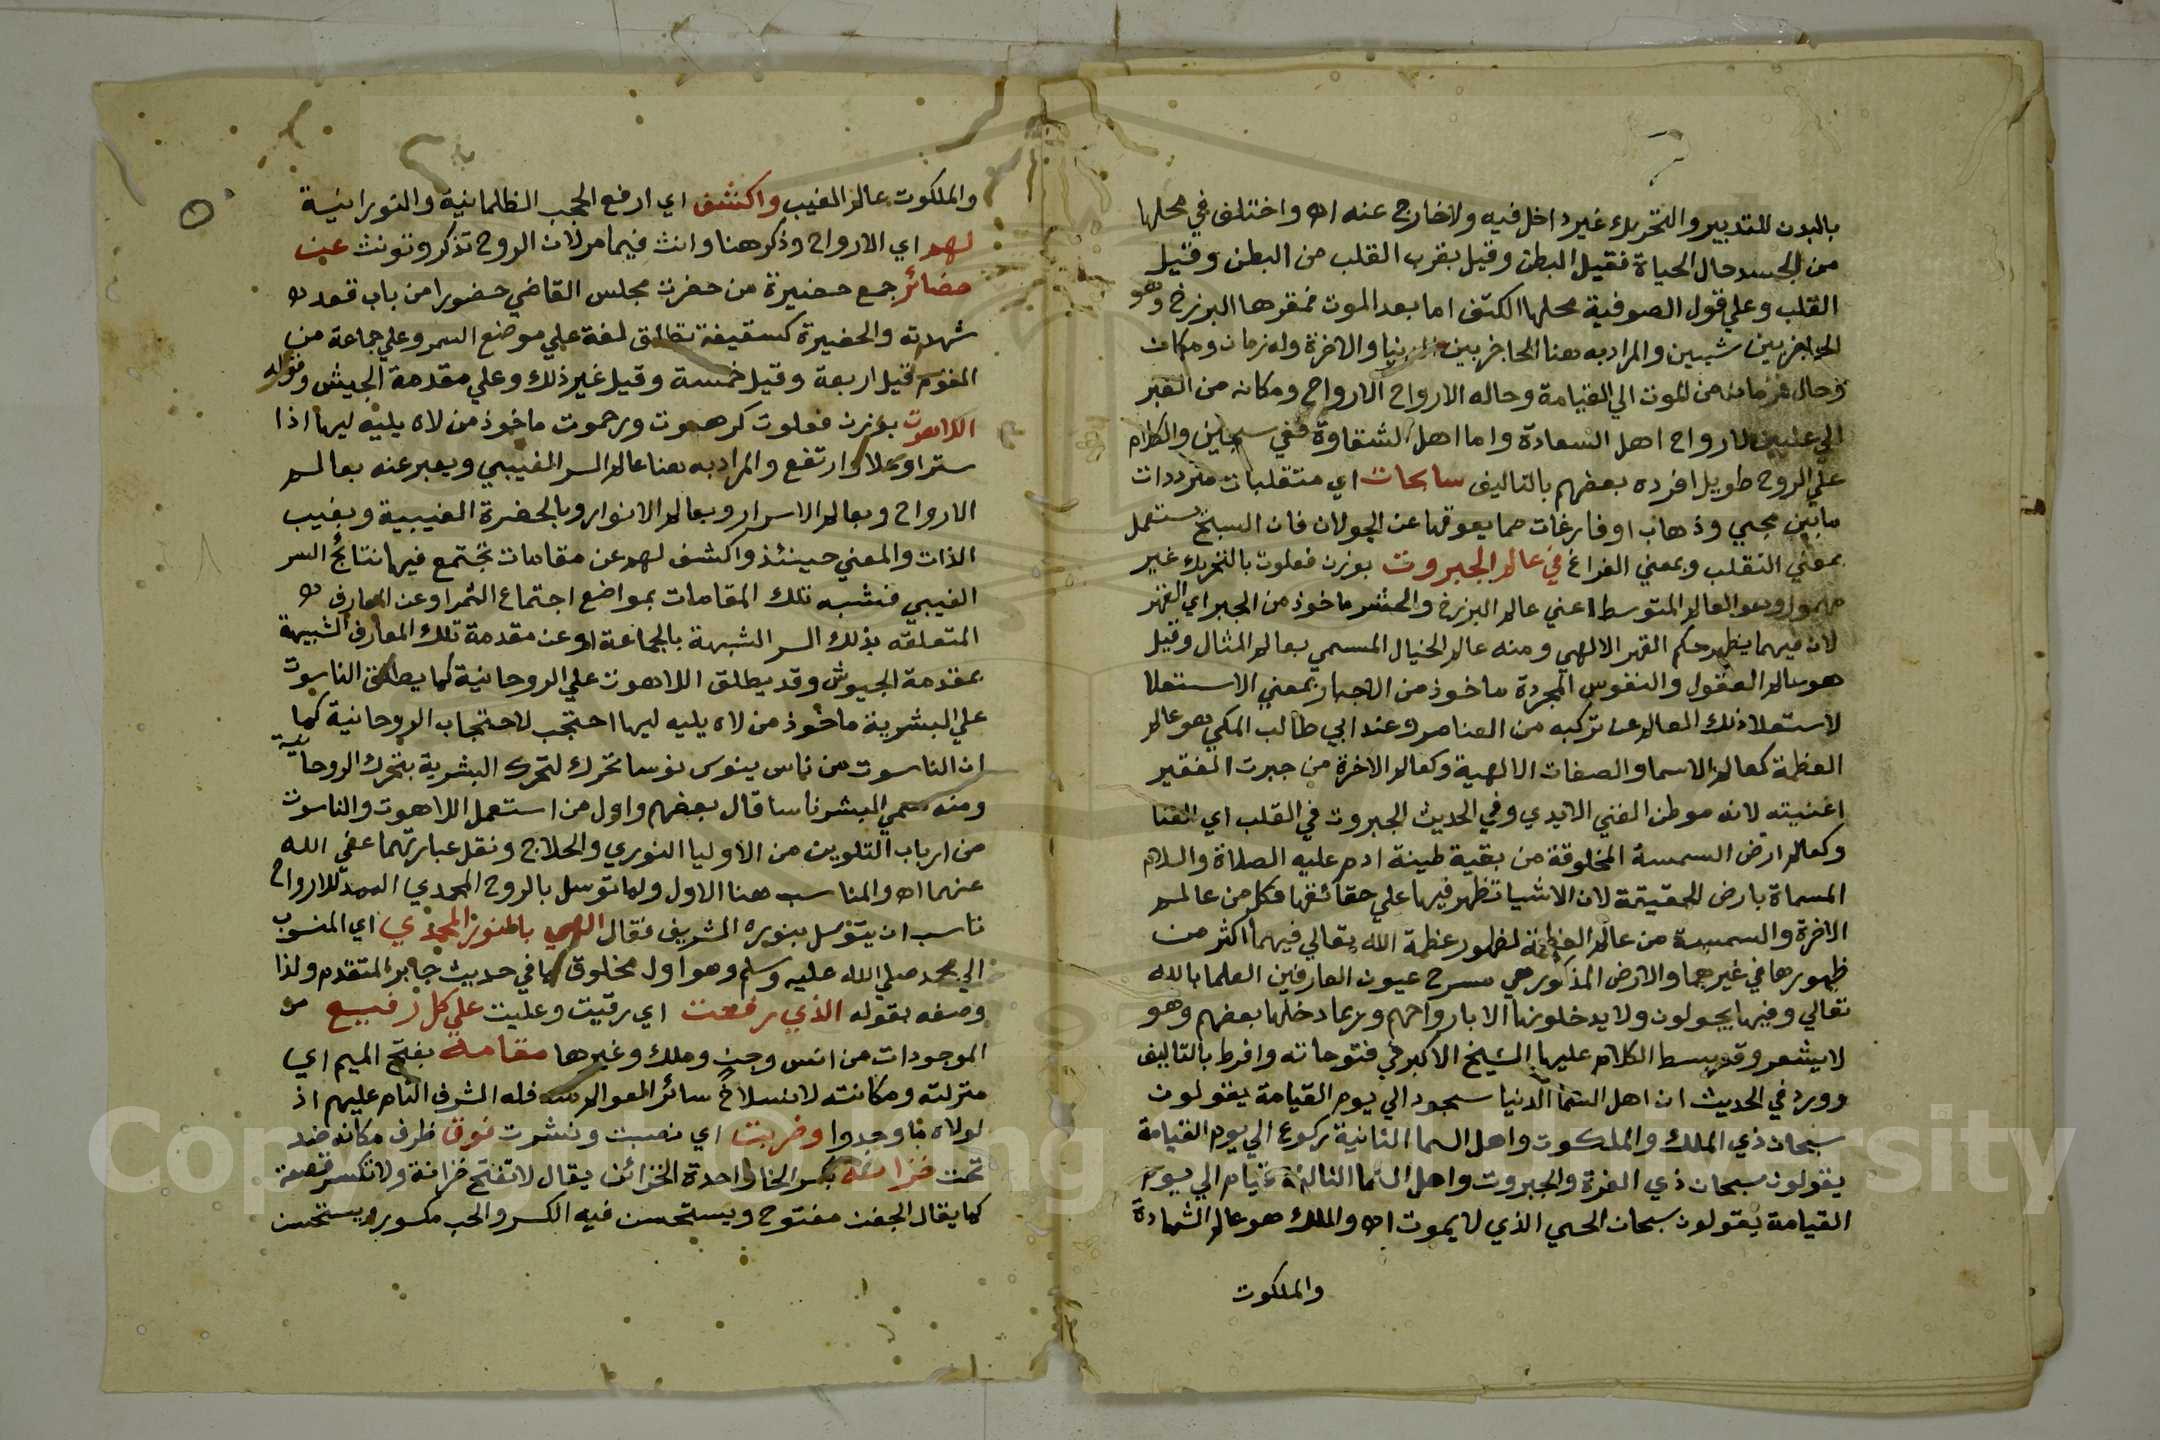 بالبدن للتدبير والتحريك غير داخل فيه ولا خارج عنه اه واختلف في محلها
من الجسد حال الحياة فقيل البطن وقيل بقرب القلب من البطن وقيل
القلب وعلي قول الصوفية محلها الكتف اما بعد الموت فمقرها البرزخ وهو
الحاجز بين شيين والمراد به هنا الحاجز بين الدنيا والاخرة وله زمان ومكان
وحال فزمانه من الموت الي القيامة وحاله الارواح ومكانه من القبر
الي عليين لارواح اهل السعادة واما اهل الشقاوة ففي سجين والكلام
علي الروح طويل افرده بعضهم بالتاليف سابحات اي متقلبات مترددات
مابين مجيي وذهاب او فارغات مما يعوقها عن الجولان فان السبح يستعمل
بمعني التقلب وبمعني الفراغ في عالم الجبروت بوزن فعلوت بالتحريك غير
مهموز وهو العالم المتوسط اعني عالم البرزخ والحشر ماخوذ من الجبر اي القهر
لان فيهما يظهر حكم القهر الالهي ومنه عالم الخيال المسمي بعالم المثال وقيل
هو عالم العقول والنفوس المجردة ماخوذ من الاجبار بمعني الاستعلا
لاستعلا ذلك العالم عن تركبه من العناصر وعند ابي طالب المكي هو عالم
العظمة كعالم الاسما والصفات الالهية وكعالم الاخرة من جبرت الفقير
اغنيته لانه موطن الغني الابدي وفي الحديث الجبروت في القلب اي الغنا
وكعالم ارض السمسمة المخلوقة من بقية طينة ادم عليه الصلاة والسلام
المسماة بارض الحقيقة لان الاشيا تظهر فيها علي حقائقها فكل من عالم
الاخرة والسمسمة من عالم العظمة لظهور عظمة الله تعالي فيهما اكثر من
ظهورها في غيرهما والارض المذكور هي مسرح عيون العارفين العلما بالله
تعالي وفيها يجولون ولا يدخلونها الا بارواحهم وربما دخلها بعضهم وهو
لا يشعر وقد بسط الكلام عليها الشيخ الاكبر في فتوحاته وافرط بالتاليف
وورد في الحديث ان اهل السما الدنيا سجود الي يوم القيامة يقولون
سبحان ذي الملك والملكوت واهل السما الثانية ركوع الي يوم القيامة
يقولون سبحان ذي العزة والجبروت واهل السما الثالثة قيام الي يوم
القيامة يقولون سبحان الحي الذي لا يموت اه والملك هو عالم الشهادة
والملكوت
والملكوت عالم الغيب واكشف اي ارفع الحجب الظلمانية والنورانية
لهم اي الارواح وذكر هنا وانث فيما مر لان الروح تذكر وتونث عن
حضائر جمع حضيرة من حضرت مجلس القاضي حضورا من باب قعد
شهدته والحضيرة كسقيفة تطلق لغة علي موضع التمر وعلي جماعة من
القوم قيل اربعة وقيل خمسة وقيل غير ذلك وعلي مقدمة الجيش وقوله
اللاهوت بوزن فعلوت كرهبوت ورحموت ماخوذ من لاه يليه ليها اذا
ستر او علا وارتفع والمراد به هنا عالم السر الغيبي ويعبر عنه بعالم
الارواح وبعالم الاسرار وبعالم الانوار وبالحضرة الغيبية وبغيب
الذات والمعني حينئذ واكشف لهم عن مقامات تجتمع فيها نتائج السر
الغيبي فشبه تلك المقامات بمواضع اجتماع التمر او عن المعارف
المتعلقة بذلك السر الشبيهة بالجماعة او عن مقدمة تلك المعارف الشبيهة
بمقدمة الجيوش وقد يطلق اللاهوت علي الروحانية كما يطلق الناسوت
علي البشرية ماخوذ من لاه يليه ليها احتجب لاحتجاب الروحانية كما
ان الناسوت من ناس ينوس نوسا تحرك لتحرك البشرية بتحرك الروحانية
ومنه سمي البشر ناسا قال بعضهم واول من استعمل اللاهوت والناسوت
من ارباب التلوين من الاوليا النوري والحلاج ونقل عبارتهما عفي الله
عنهما اه والمناسب هنا الاول ولما توسل بالروح المحمدي الممد للارواح
ناسب ان يتوسل بنوره الشريف فقال الهي بالنور المحمدي اي المنسوب
الي محمد صلي الله عليه وسلم وهو اول مخلوق كما في حديث جابر المتقدم ولذا
وصفه بقوله الذي رفعت اي رقيت وعليت علي كل رفيع من
الموجودات من انس وجن وملك وغيرها مقامه بفتح الميم اي
منزلته ومكانته لانسلاخ سائر العوالم منه فله الشرف التام عليهم اذ
لولاه ما وجدوا وضربت اي نصبت ونشرت فوق ظرف مكان ضد
تحت خزانة بكسر الخا واحدة الخزائن يقال لا تفتح خزانة ولا تكسر قصعة
كما يقال الجفن مفتوح ويستحسن فيه الكسر والحب مكسور ويستحسن